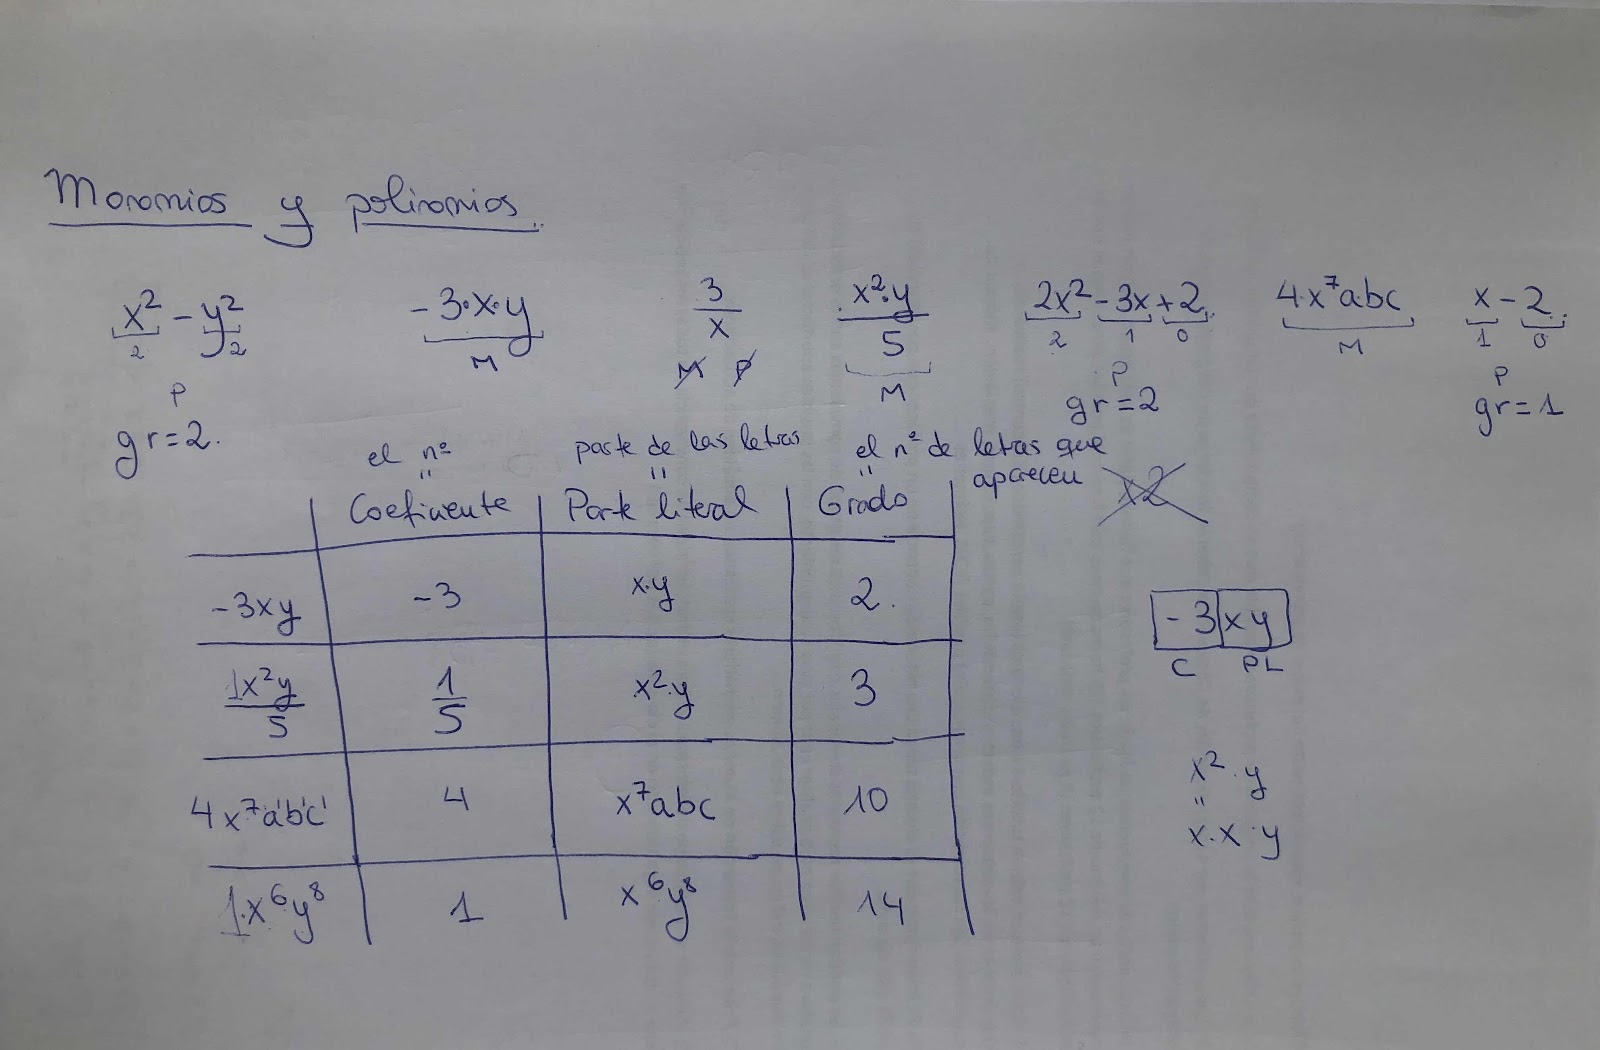 Monomios y polinomios.
x² - y² -3·x·y 3/x x²·y/5 2x² - 3x + 2 4·x⁷abc x - 2
2 2 M M P M 2 1 0 M 1 0
P P P
gr=2. gr=2 gr=1
el nº parte de las letras el nº de letras que
" " " aparecen x2
Coeficiente Parte literal Grado
-3xy -3 x·y 2.
1x²y/5 1/5 x²·y 3
4x⁷a¹b¹c¹ 4 x⁷abc 10
1·x⁶y⁸ 1 x⁶y⁸ 14
-3 xy
C PL
x²·y
"
x·x·y